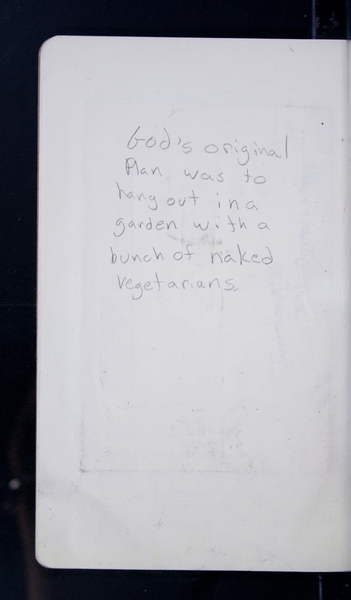 God's original
Plan was to
hang out in a
garden with a
bunch of naked
vegetarians.